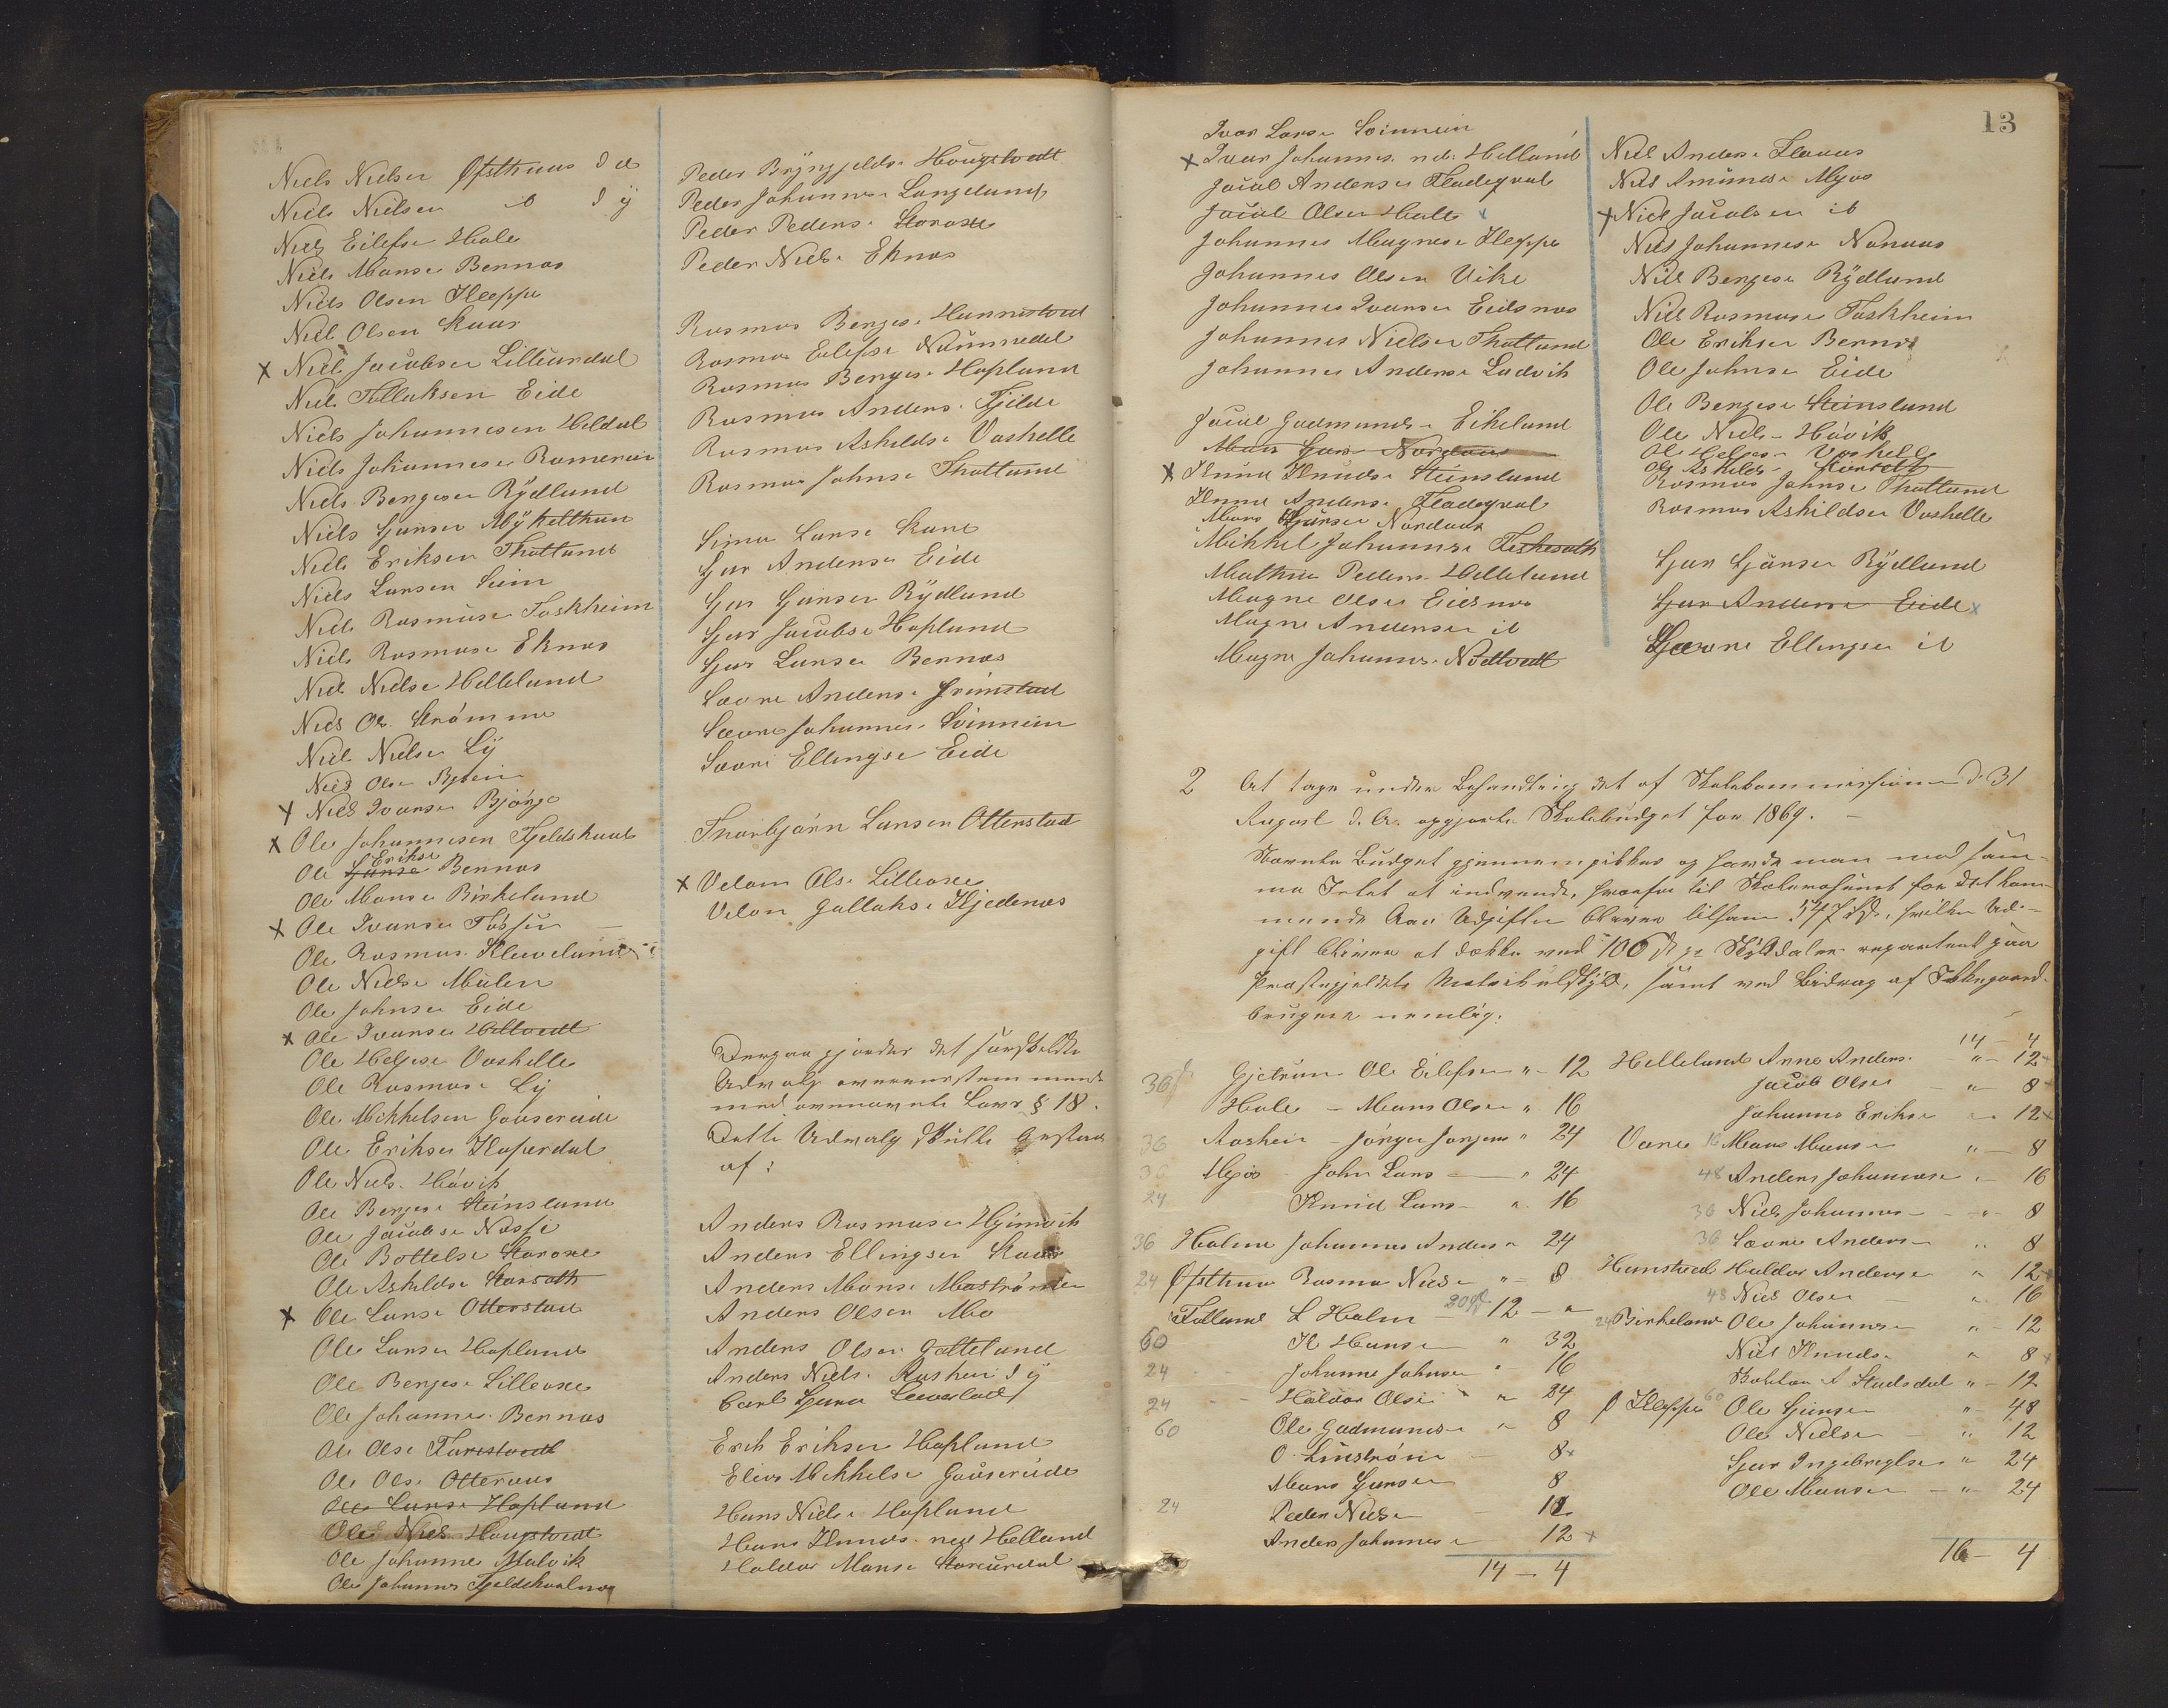 Niels Nielsen Øfsthuus d æ
Niels Nielsen ib d y
Niels Eilefse Hole
Niels Monsen Bernæs
Niels Olsen Kleppe
Niels Olsen Skaar
x Niels Jacobsen Lilleurdal
Niels Tollaksen Eide
Niels Johannesen Heldal
Niels Johannesen Romerein
Niels Bergesen Rydlund
Niels Gjørsen Mykelthun
Niels Eriksen Thotland
Niels Larsen Seim
Niels Rasmuse Toskheim
Niels Rasmuse Eknæs
Niels Nielse Helleland
Niels Ols. Strømme
Niels Nielse Ly
Niels Olse
x Niels Ivarse Bjørge
x Ole Johannesen Fjeldskaal
Ole Erikse Bernæs
Ole Monse Birkeland
x Ole Ivarse Fosse
Ole Rasmus. Kleveland
Ole Nielse Mulen
Ole Johnse Eide
x Ole Ivarse Heltvedt
Ole Helgese Voskelle
Ole Rasmuse Ly
Ole Mikkelsen Gousereide
Ole Erikse Koperdal
Ole Niels. Høvik
Ole Bergese Steinsland
Ole Jacobse
Ole Bottelse Storoxe
Ole Askildse
x Ole Larse Otterstad
Ole Larsen Hopland
Ole Bergese Lilleoxe
Ole Johannes. Bernæs
Ole Olse
Ole Olse
Ole Larse Hopland
Ole Niels Hougstvedt
Ole Johanne Malvik
Ole Johannes Fjeldskaalnæs
Peder Bryngjelds. Hougstvedt
Peder Johannese Langeland
Peder Peders. Storoxe
Peder Niels. Eknæs
Rasmus Berges. Hannistvedt
Rasmus Eilefse
Rasmus Berges. Hopland
Rasmus Anders. Tjilde
Rasmus Askilds. Voskelle
Rasmus Johnse Thotland
Simon Larse Skare
Gjør Andersen Eide
Gjør Gjørsen Rydlund
Gjør Jacobse Hopland
Gjør Larsen Bernæs
Sævre Anders. Grimstad
Sævre Johannes. Svinneim
Sævre Ellingse Eide
Thorbjørn Larsen Otterstad
x Velom Ols. Lilleoxe
Velom Gullaks. Kjednæs
Dernæst gjordes det forestillte
Udvalg overeensstemmende
med ovennævnte Lovs § 18.
Dette Udvalg skulle bestaa
af:
Anders Rasmuse Hjimvik
Anders Ellingsen Skaar
Anders Monse
Anders Olsen Mo
Anders Olsen Gottelund
Anders Niels. Rosheim d y
Erik Eriksen Hopland
Elias Mikkelse Gouserude
Hans Niels. Hopland
Hans Knuds. ned Helland
Haldor Monse Storurdal
13
Ivar Larse Svinneim
x Ivar Johannes. nd. Helland
Jacob Andersen Fladeqval
Jacob Olsen Hatle
Johannes Magnese Kleppe
Johannes Olsen Vike
Johannes Ivarse Eidsnæs
Johannes Nielsen Thotland
Johannes Anderse Ladvik
Jacob Gudmunds. Eikeland
Mons Gjørs. Nordaas
x Knud Knuds. Steinsland
Knud Anders. Fladeqval
Mons Gjørsen Nordaas
Mikkel Johannse
Mathias Peders. Helleland
Magne Olse Eidsnæs
Magne Andersen ib
Magne Johannes. Nødtvedt
Niels Anderse Flaaas
Niels Amundse Mjøs
x Niels Jacobsen ib
Niels Johannese Nonaas
Niels Bergese Rydlund
Niels Rasmuse Toskheim
Ole Eriksen Bernæs
Ole Johnse Eide
Ole Bergese Steinslund
Ole Niels. Høvik
Ole Helges. Voskelle
Ole Askilds.
Rasmus Johnse Thotland
Rasmus Askildsen Voskelle
Gjør Gjørsen Rydlund
Gjør Anderse Eide x
Sævre Ellingsen ib
2 At tage under Behandling det af Skolekommissionen d. 31
August d. A. opgjorte Skolebudget for 1869. –
Nævnte Budget gjennemgikkes og havde man mod sam-
me Intet at indvende, hvorfor til Skolevæsenet for det kom-
mende Aar Udgifter bliver tilsam 547 Spd., hvilken Ud-
gift bliver at dække ved 100 ß pr Skylddaler repartert paa
Præstegjeldets Matrikulskyld, samt ved Bidrag af
brugere nemlig:
36ß Gjetrum Ole Eilefsen " – 12
Hole – Mons Olsen " 16
36 Rosheim – Jørgen Jørgens " 24
36 Mjøs – John Lars – " 24
24 Knud Lars – " 16
36 Holm Johannes Anders " 24
24 Øfsthuus Rasmus Nielse " – 8
Tolland L Holm – 12 – "
60 K Hanse " 32
24 Johanne Johnse " 16
24 Haldor Olse " 24
60 Ole Gudmunds. " 8
O. Linstrøm – 8 x
Mons Gjørsen 8
24 Peder Nielse – 12
Anders Johannese 12 x
14 – 4
14 – 4
Helleland Arne Anders. " – 12
Jacob Olse – " 8
Johannes Erikse " 12 x
Vare 16 Mons Monse " – 8
48 Anders Johannese " – 16
36 Niels Johannes – " – 8
36 Sævre Anders – " 8
Hanstvedt Haldor Anderse " 12
48 Niels Olse " 16
24 Birkeland Ole Johannese " – 12
Niels Knuds. " 8 x
" – 12
Kleppe 60 Ole Gjørsen " – 48
Ole Nielse " 12
Gjør Ingebregtse " 24
Ole Monse – " – 24
16 – 4